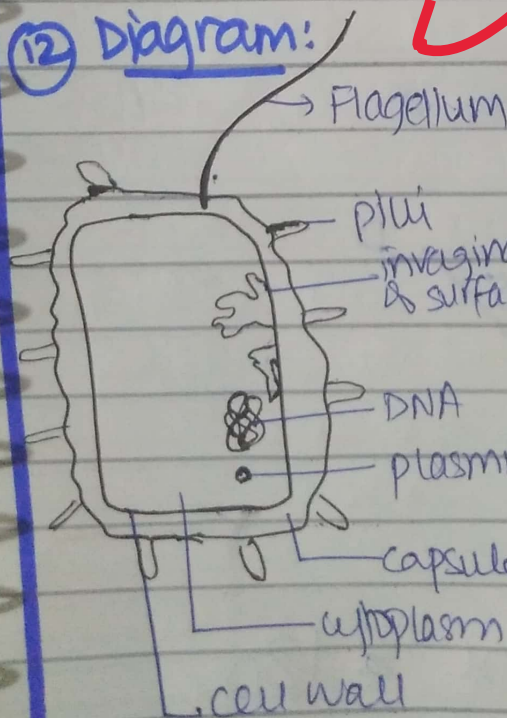 12 Diagram:
Flagellum
pili
invagin
& surfa
DNA
plasmi
capsul
cytoplasm
cell wall